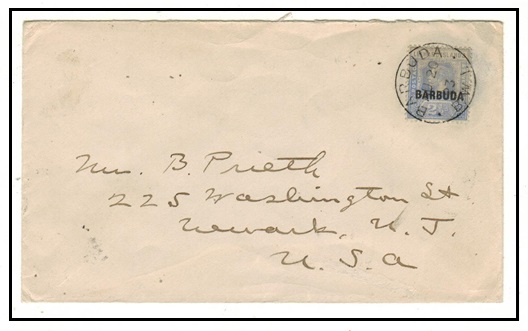 BARBUDA B.W.I.
BARBUDA
Mrs. B. Prieth
225 Washington St
Newark, N. J.
U. S. a